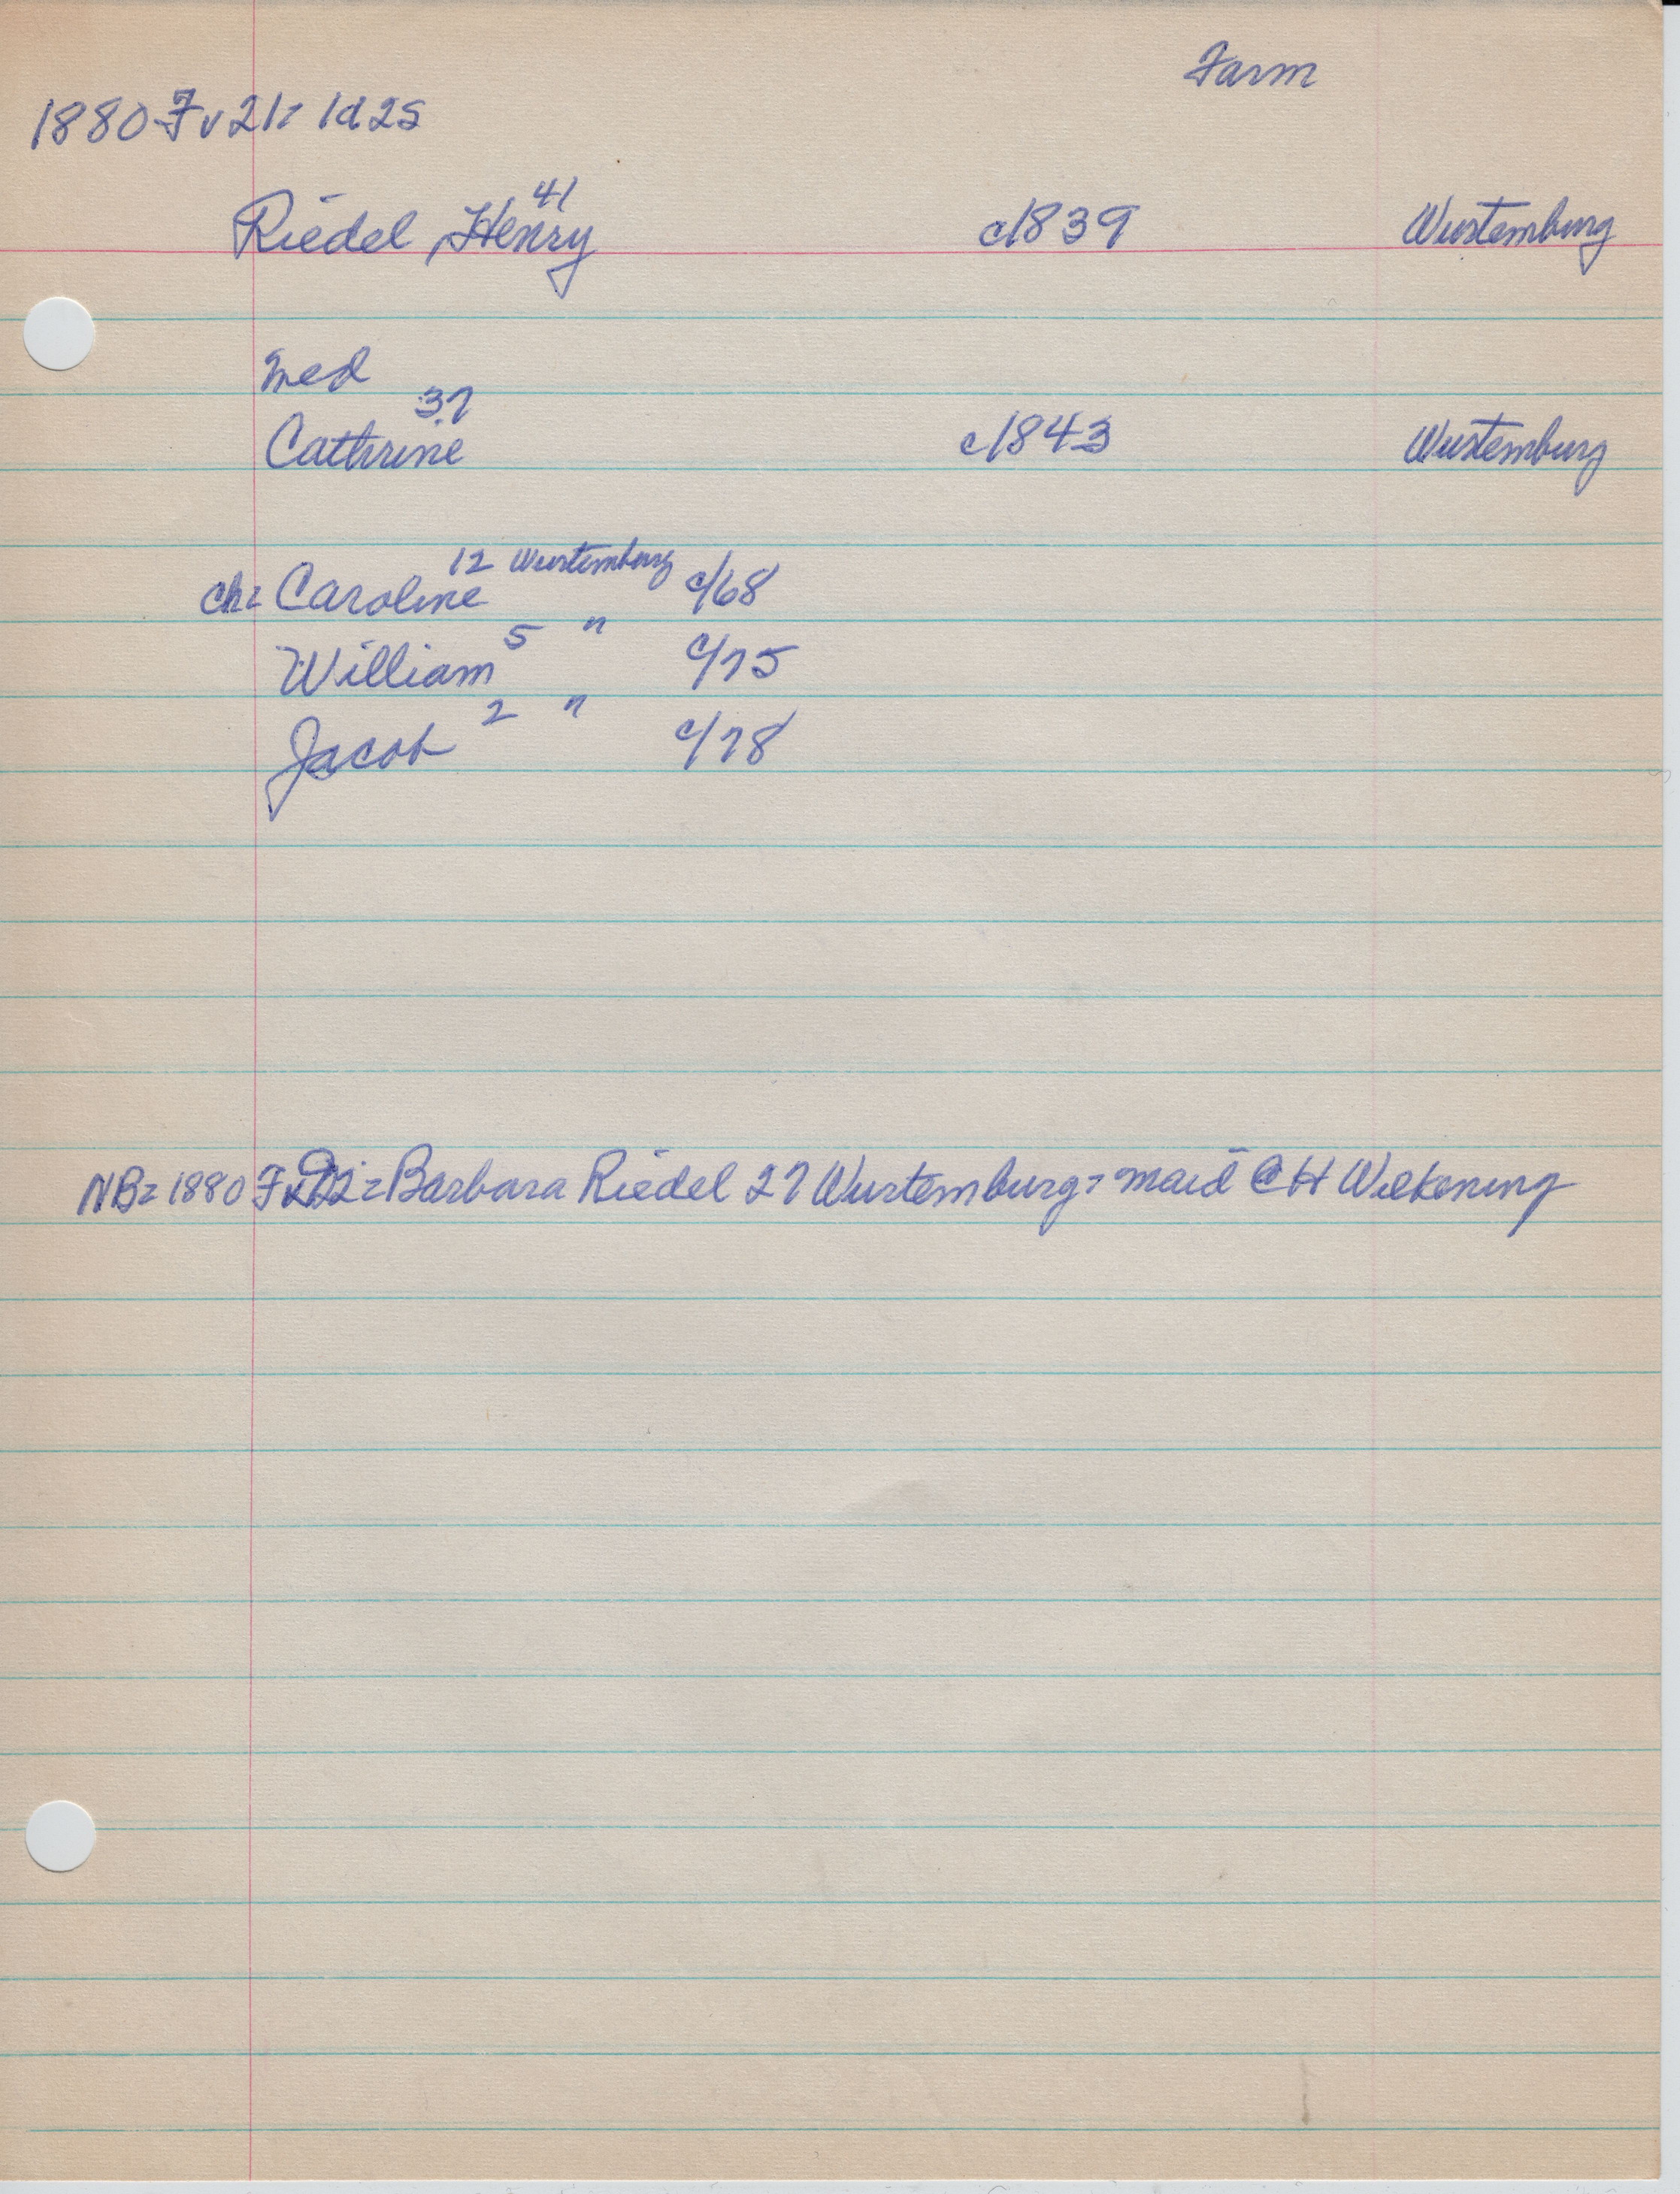 Farm
1880 Fv21= 1d2s
Riedel, Henry 41 c1839 Wurtemburg
med
Cathrine 37 c1843 Wurtemburg
ch= Caroline 12 Wurtemburg c/68
William 5 " c/75
Jacob 2 " c/78
NB= 1880 = Barbara Riedel 27 Wurtemburg= maid CH Wilkening